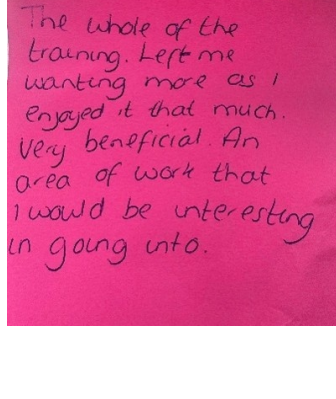 The whole of the
training. Left me
wanting more as I
enjoyed it that much.
Very beneficial. An
area of work that
I would be interesting
in going into.